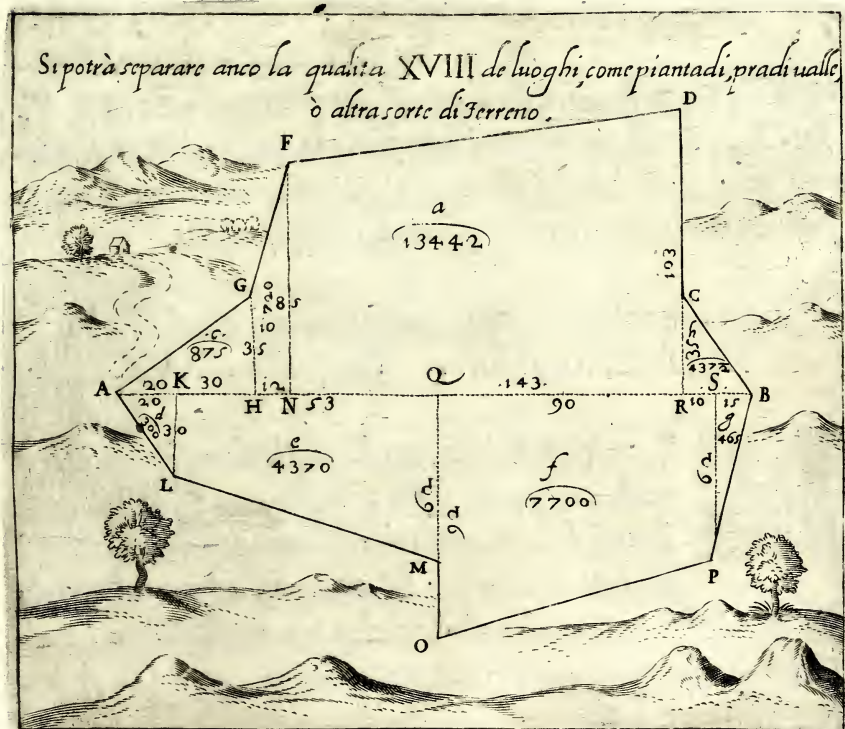 Si potrà separare anco la qualita XVIII de luoghi, come piantadi, pradi ualle,
ò altra sorte di Terreno.
D
F
a
13442
103
G
720
85
10
C
c
875
35
35
437½
A
20
K
30
12
Q
143
S
B
20
H
N
53
90
R
10
15
d
300
30
e
4370
g
465
L
f
7700
62
92
62
M
P
O